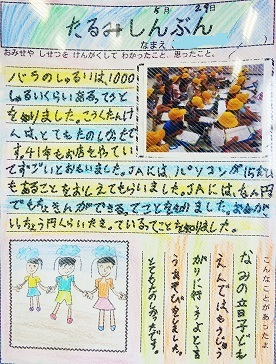 5月29日
たるみしんぶん
なまえ
おみせや しせつを けんがくして わかったこと、思ったこと。
バラのしゅるいは1000
しゅるいくらいあるってことを
を知りました。こうくたんけ
んは、とてもたのしかったで
す。41年もお店をやってい
てすごいとおもいました。JAには、パソコンが15だい
もあることをおしえてもらいました。JAには、なん円
でもちょきんができるってことを知りました。お金が
いちょう円くらいたまっているってことも知りました。
こんなことがあったよ
なみの立日子ども
えんでは、もうじゅう
がりに行こうよとと
うあそびをしました。
とてもたのしかったです。